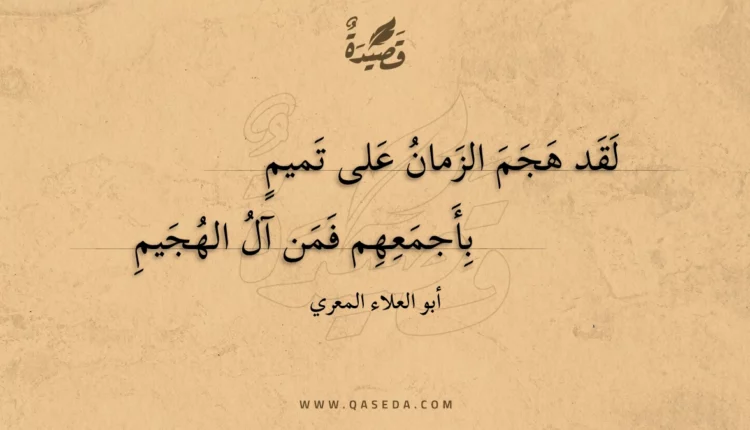 قَصِيدَةٌ
لَقَد هَجَمَ الزَمانُ عَلى تَميمٍ
بِأَجمَعِهِم فَمَن آلُ الهُجَيمِ
أبو العلاء المعري
WWW.QASEDA.COM